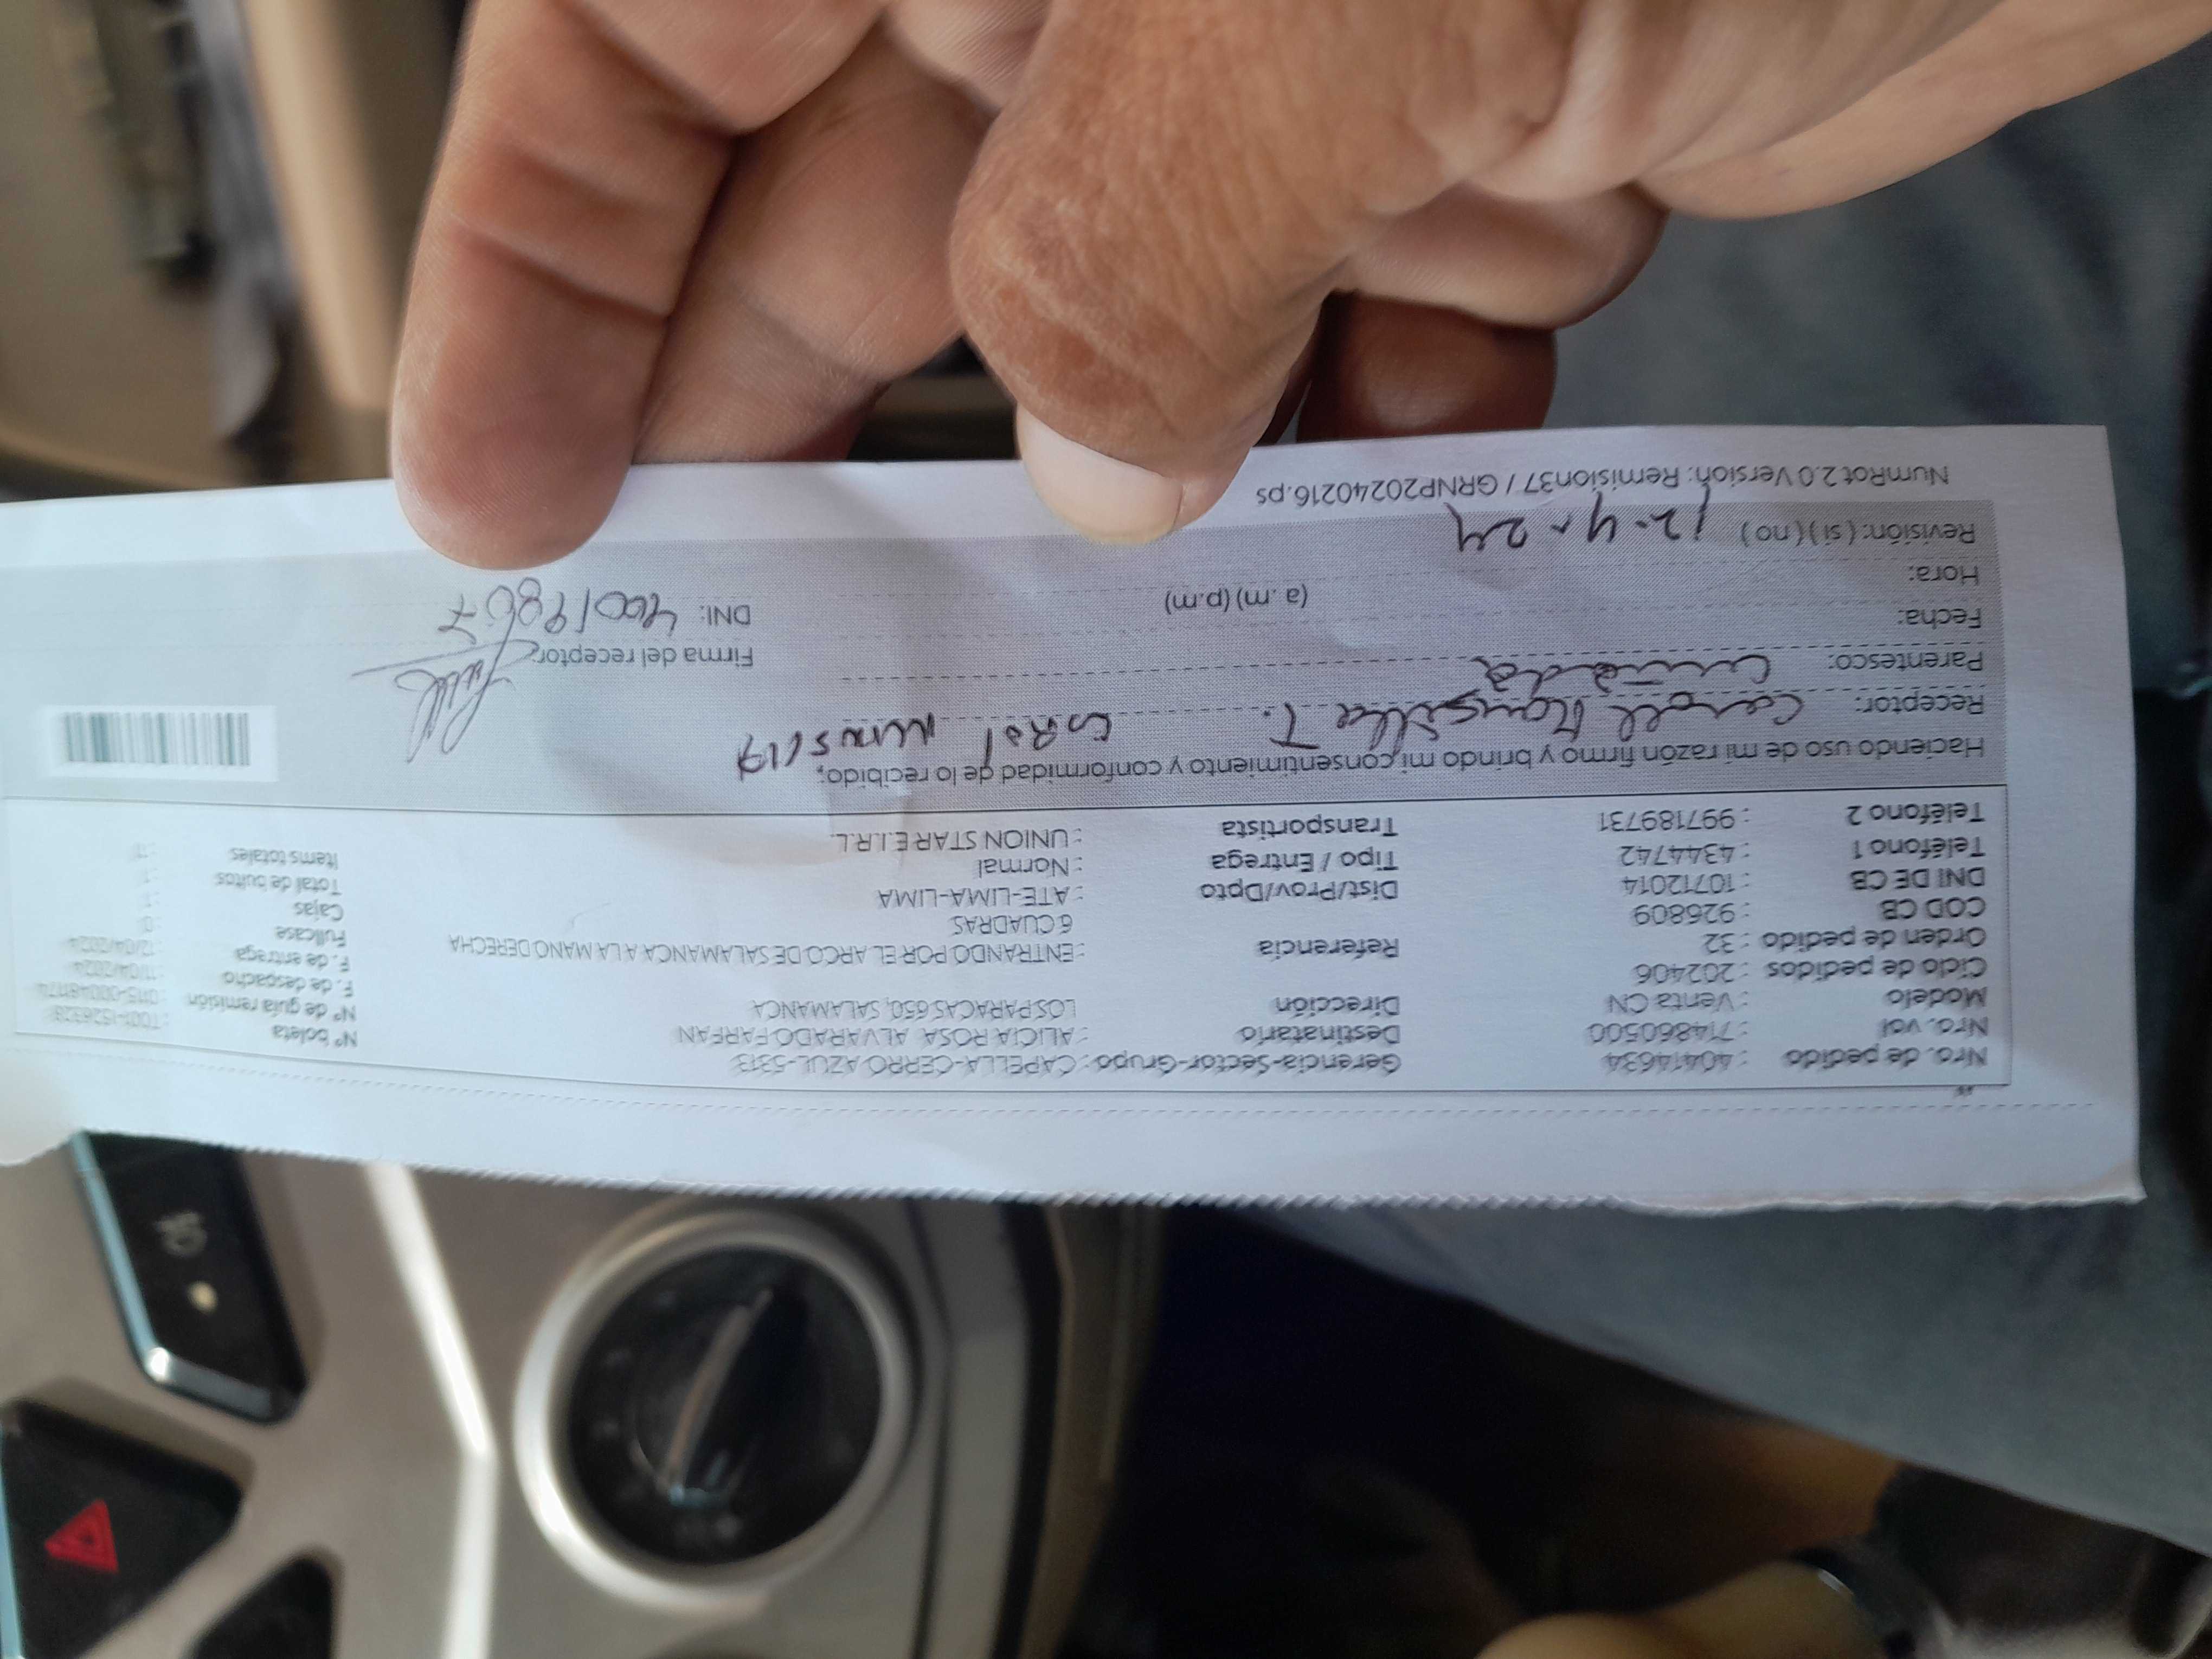 Nro. de pedido : 40414634 Gerencia-Sector-Grupo : CAPELLA-CERRO AZUL-5313 Nº boleta
Nro. vol : 714860500 Destinatario : ALICIA ROSA ALVARADO FARFAN Nº de guía remisión
Modelo : Venta CN Dirección LOS PARACAS 650, SALAMANCA F. de despacho : 11/04/2024
Ciclo de pedidos : 202406 Referencia : ENTRANDO POR EL ARCO DE SALAMANCA A LA MANO DERECHA F. de entrega : 12/04/2024
Orden de pedido : 32 6 CUADRAS Fullcase : 0
COD CB : 926809 Dist/Prov/Dpto : ATE-LIMA-LIMA Cajas : 1
DNI DE CB : 10712014 Tipo / Entrega : Normal Total de bultos : 1
Teléfono 1 : 4344742 Transportista : UNION STAR E.I.R.L. Items totales
Teléfono 2 : 997189731
Haciendo uso de mi razón firmo y brindo mi consentimiento y conformidad de lo recibido;
Receptor: Caroll Mansilla T.
Parentesco: Cuñada Firma del receptor:
Fecha: DNI:
Hora: (a.m) (p.m)
Revisión: (si) (no) 12-4-24
NumRot 2.0 Version: Remision37 / GRNP20240216.ps